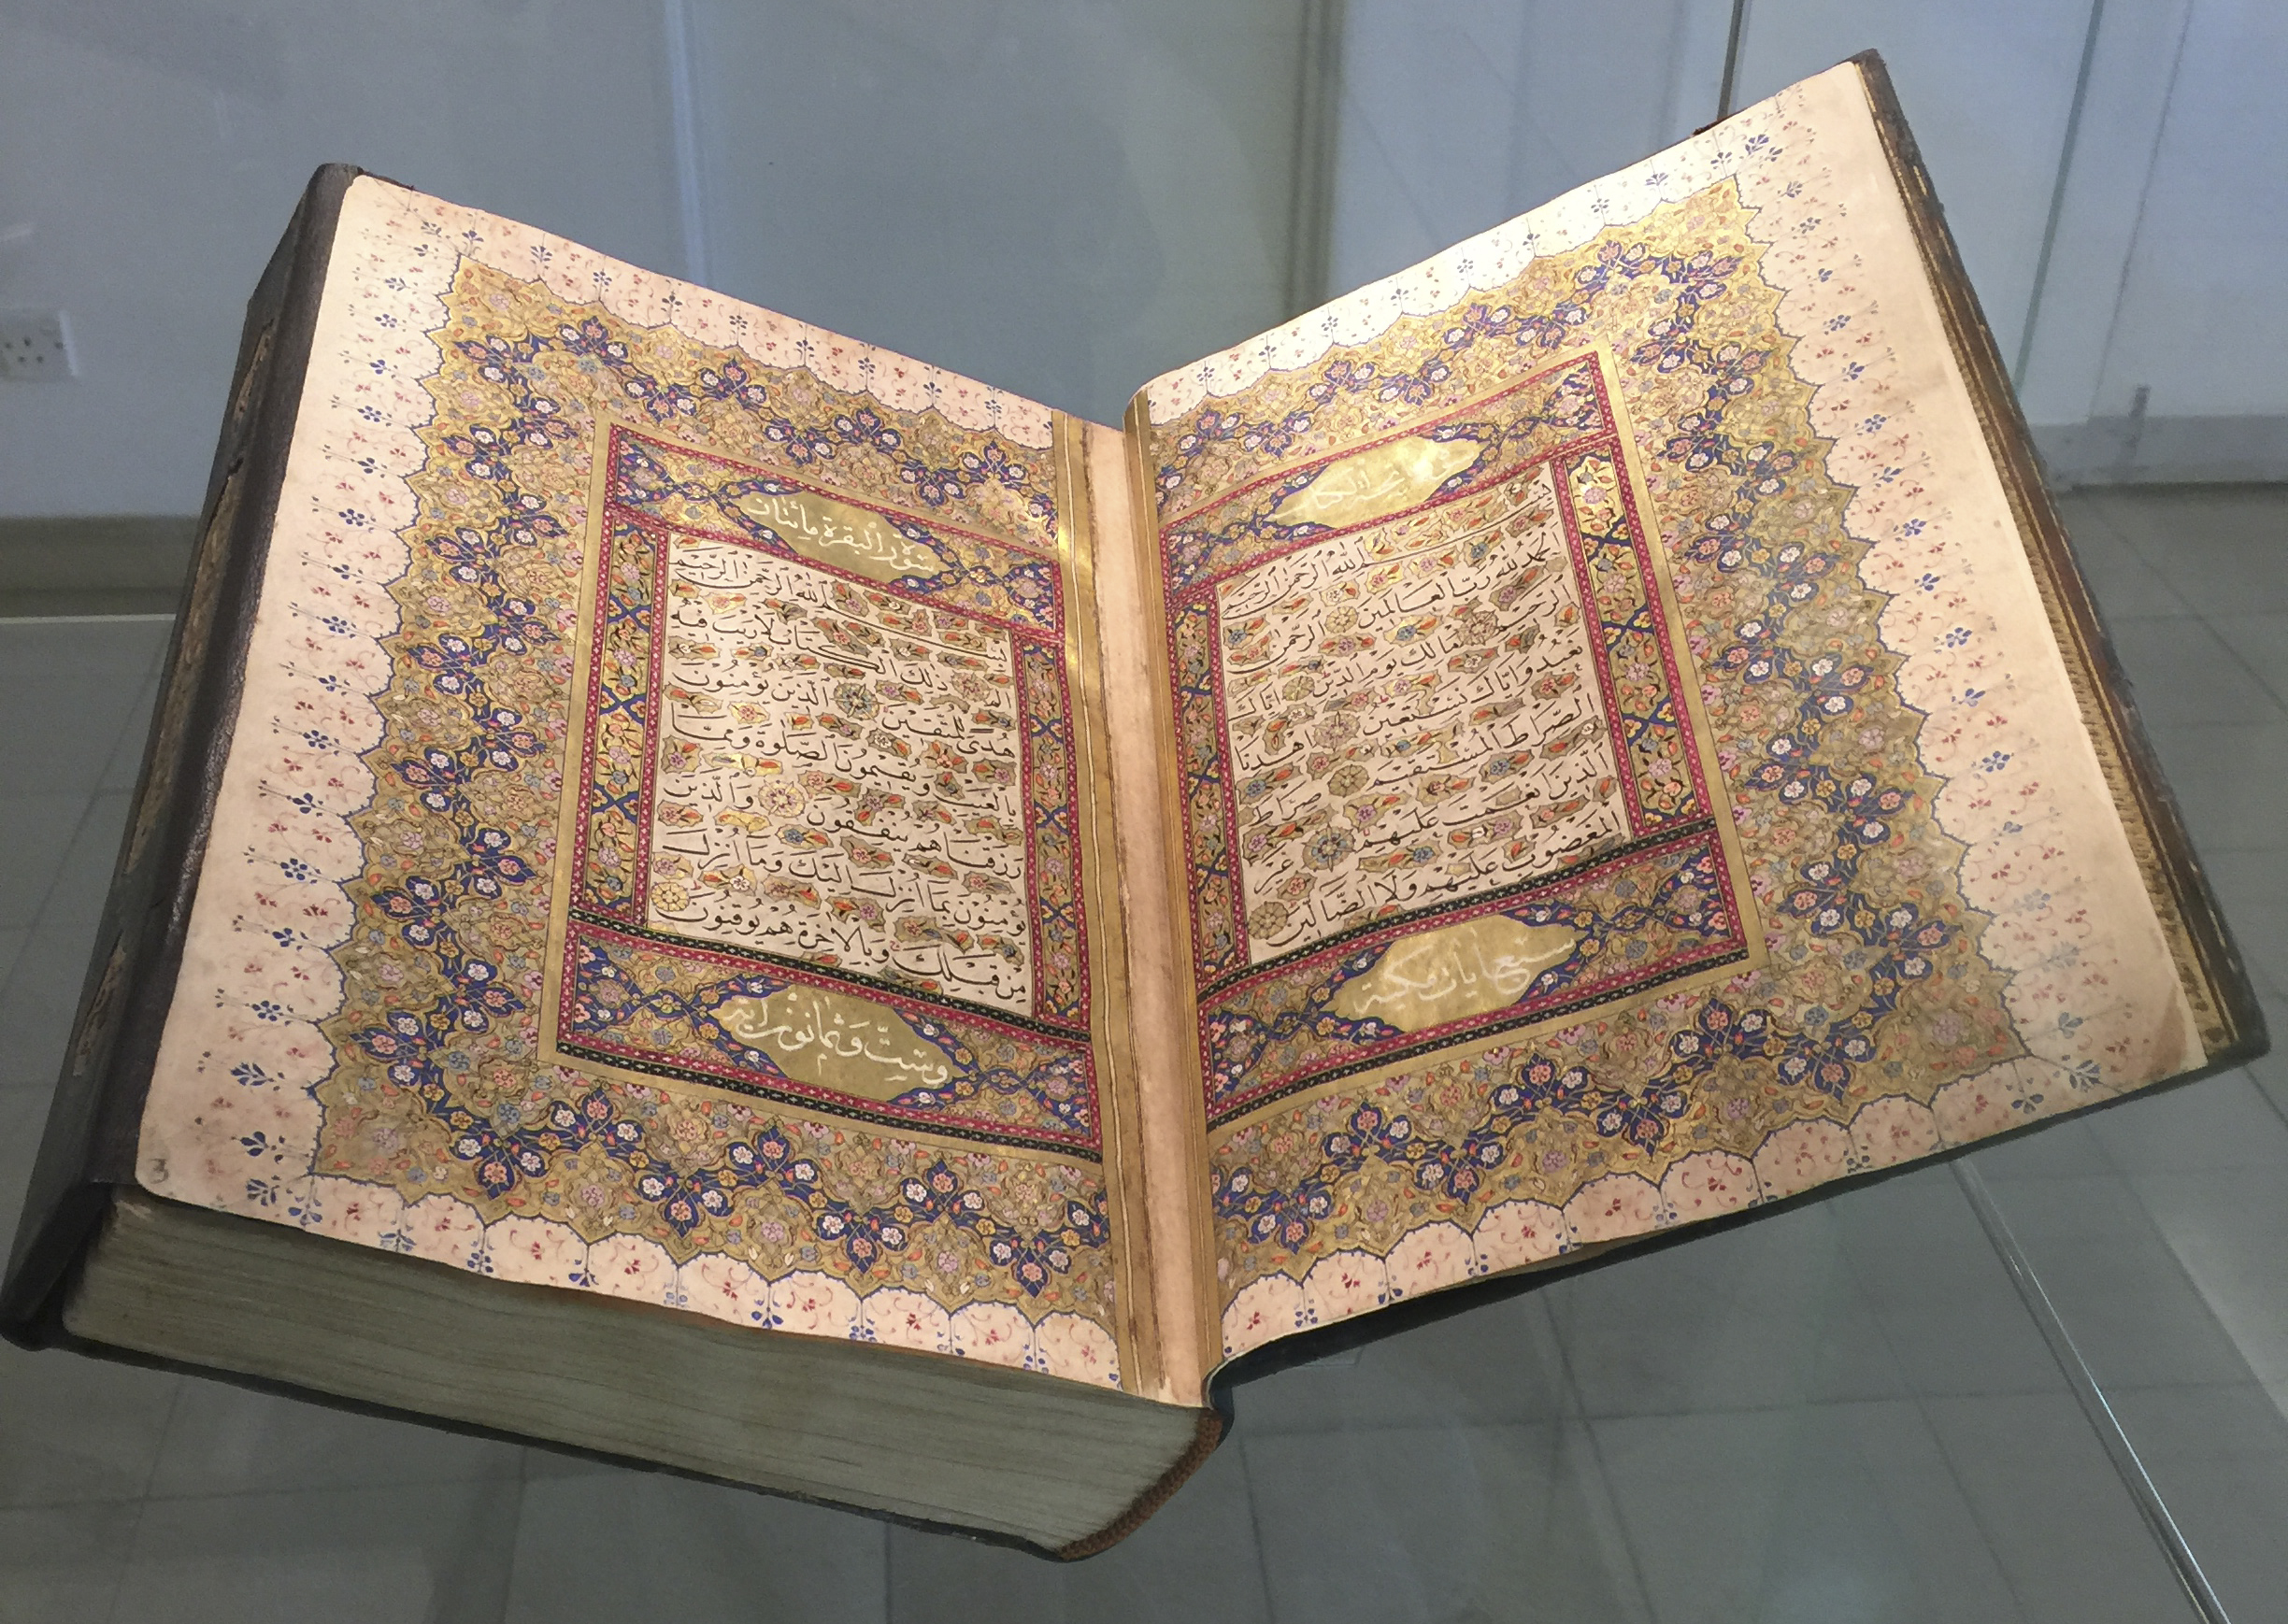 فاتحة الكتاب
بسم الله الرحمن الرحيم
الحمد لله رب العالمين الرحمن
الرحيم مالك يوم الدين اياك
نعبد واياك نستعين اهدنا
الصراط المستقيم صراط
الذين انعمت عليهم غير
المغضوب عليهم ولا الضالين
سبع ايات مكية
سورة البقرة مائتان
بسم الله الرحمن الرحيم
الم ذلك الكتاب لا ريب فيه
هدى للمتقين الذين يؤمنون
بالغيب ويقيمون الصلوة ومما
رزقناهم ينفقون والذين
يؤمنون بما انزل اليك وما انزل
من قبلك وبالاخرة هم يوقنون
وست وثمانون اية
3